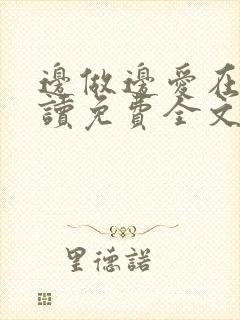 邊做邊愛在
讀免費全文
里德諾